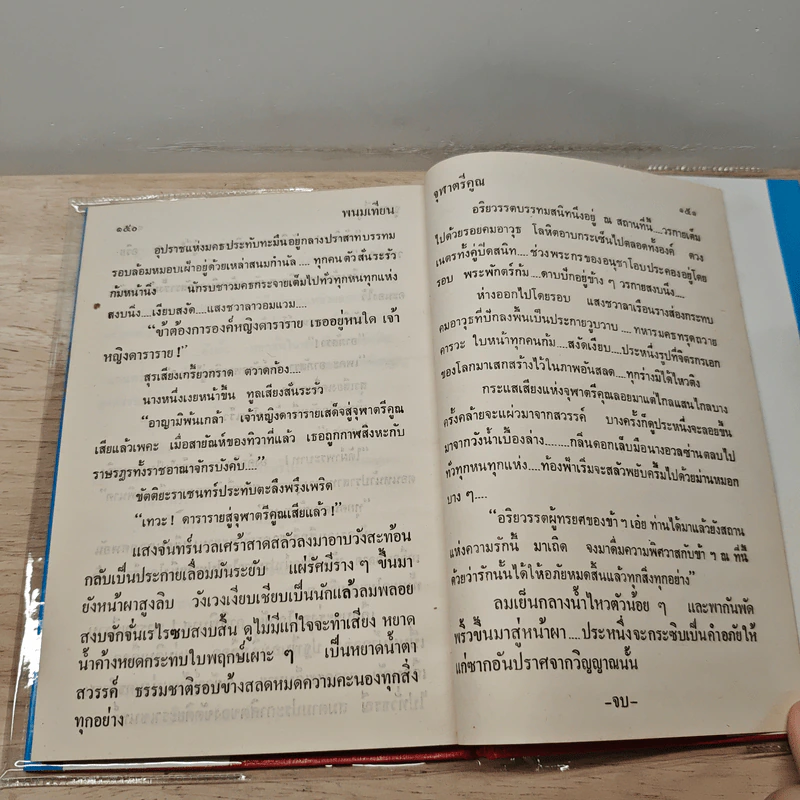 พนมเทียน
๑๕๐
อุปราชแห่งมคธประทับทะมึนอยู่กลางปราสาทบรรทม
รอบล้อมหมอบเฝ้าอยู่ด้วยเหล่าสนมกำนัล.... ทุกคนตัวสั่นระรัว
ก้มหน้านิ่ง นักรบชาวมคธกระจายเต็มไปทั่วทุกหนทุกแห่ง
สงบนิ่ง....เงียบสงัด....แสงชวาลาวอมแวม....
“ข้าต้องการองค์หญิงดาราราย เธออยู่หนใด เจ้า
หญิงดาราราย !”
สุรเสียงเกรี้ยวกราด ตวาดก้อง....
นางหนึ่งเงยหน้าขึ้น ทูลเสียงสั่นระรัว
“อาญามิพ้นเกล้า เจ้าหญิงดารารายเสด็จสู่จุฬาตรีคูณ
เสียแล้วเพคะ เมื่อสายัณห์ของทิวาที่แล้ว เธอถูกกาฬสิงหะกับ
ราษฎรทั้งราชอาณาจักรบังคับ....”
ขัตติยะราเชนทร์ประทับตะลึงพรึงเพริด
“เทวะ ! ดารารายสู่จุฬาตรีคูณเสียแล้ว !”
แสงจันทร์นวลเศร้าสาดสลัวลงมาอาบวังสะท้อน
กลับเป็นประกายเลื่อมมันระยับ แผ่รัศมีราง ๆ ขึ้นมา
ยังหน้าผาสูงลิบ วังเวงเงียบเชียบเป็นนักแล้วลมพลอย
สงบจักจั่นเรไรซบสงบสิ้น ดูไม่มีแก่ใจจะทำเสียง หยาด
น้ำค้างหยดกระทบใบพฤกษ์เผาะ ๆ เป็นหยาดน้ำตา
สวรรค์ ธรรมชาติรอบข้างสลดหมดความคะนองทุกสิ่ง
ทุกอย่าง
จุฬาตรีคูณ
๑๕๑
อริยวรรตบรรทมสนิทนิ่งอยู่ ณ สถานที่นี้....วรกายเต็ม
ไปด้วยรอยคมอาวุธ โลหิตอาบกระเซ็นไปตลอดทั้งองค์ ดวง
เนตรทั้งคู่ปิดสนิท....ช่วงพระกรของอนุชาโอบประคองอยู่โดย
รอบ พระพักตร์ก้ม....ดาบปักอยู่ข้าง ๆ วรกายสงบนิ่ง....
ห่างออกไปโดยรอบ แสงชวาลาเรือนรางส่องกระทบ
คมอาวุธที่ปักลงพื้นเป็นประกายวูบวาบ....ทหารมคธทรุดถวาย
คารวะ ใบหน้าทุกคนก้ม....สงัดเงียบ....ประหนึ่งรูปที่จิตรกรเอก
ของโลกมาเสกสร้างไว้ในภาพอันสลด....ทุกร่างมิได้ไหวติง
กระแสเสียงแห่งจุฬาตรีคูณลอยมาแต่ไกลแสนไกลบาง
ครั้งคล้ายจะแผ่วมาจากสวรรค์ บางครั้งก็ดูประหนึ่งจะลอยขึ้น
มาจากวังน้ำเบื้องล่าง....กลิ่นดอกเล็บมือนางอวลซ่านตลบไป
ทั่วทุกหนทุกแห่ง....ท้องฟ้าเริ่มจะสลัวพยับครึ้มไปด้วยม่านหมอก
บาง ๆ....
“อริยวรรตผู้ทรยศของข้า ๆ เอ๋ย ท่านได้มาแล้วยังสถาน
แห่งความรักนี้ มาเถิด จงมาดื่มความพิศวาสกับข้า ๆ ณ ที่นี้
ด้วยว่ารักนั้นได้ให้อภัยหมดสิ้นแล้วทุกสิ่งทุกอย่าง”
ลมเย็นกลางน้ำไหวตัวน้อย ๆ และพากันพัด
พริ้วขึ้นมาสู่หน้าผา....ประหนึ่งจะกระซิบเป็นคำอภัยให้
แก่ซากอันปราศจากวิญญาณนั้น
–จบ–